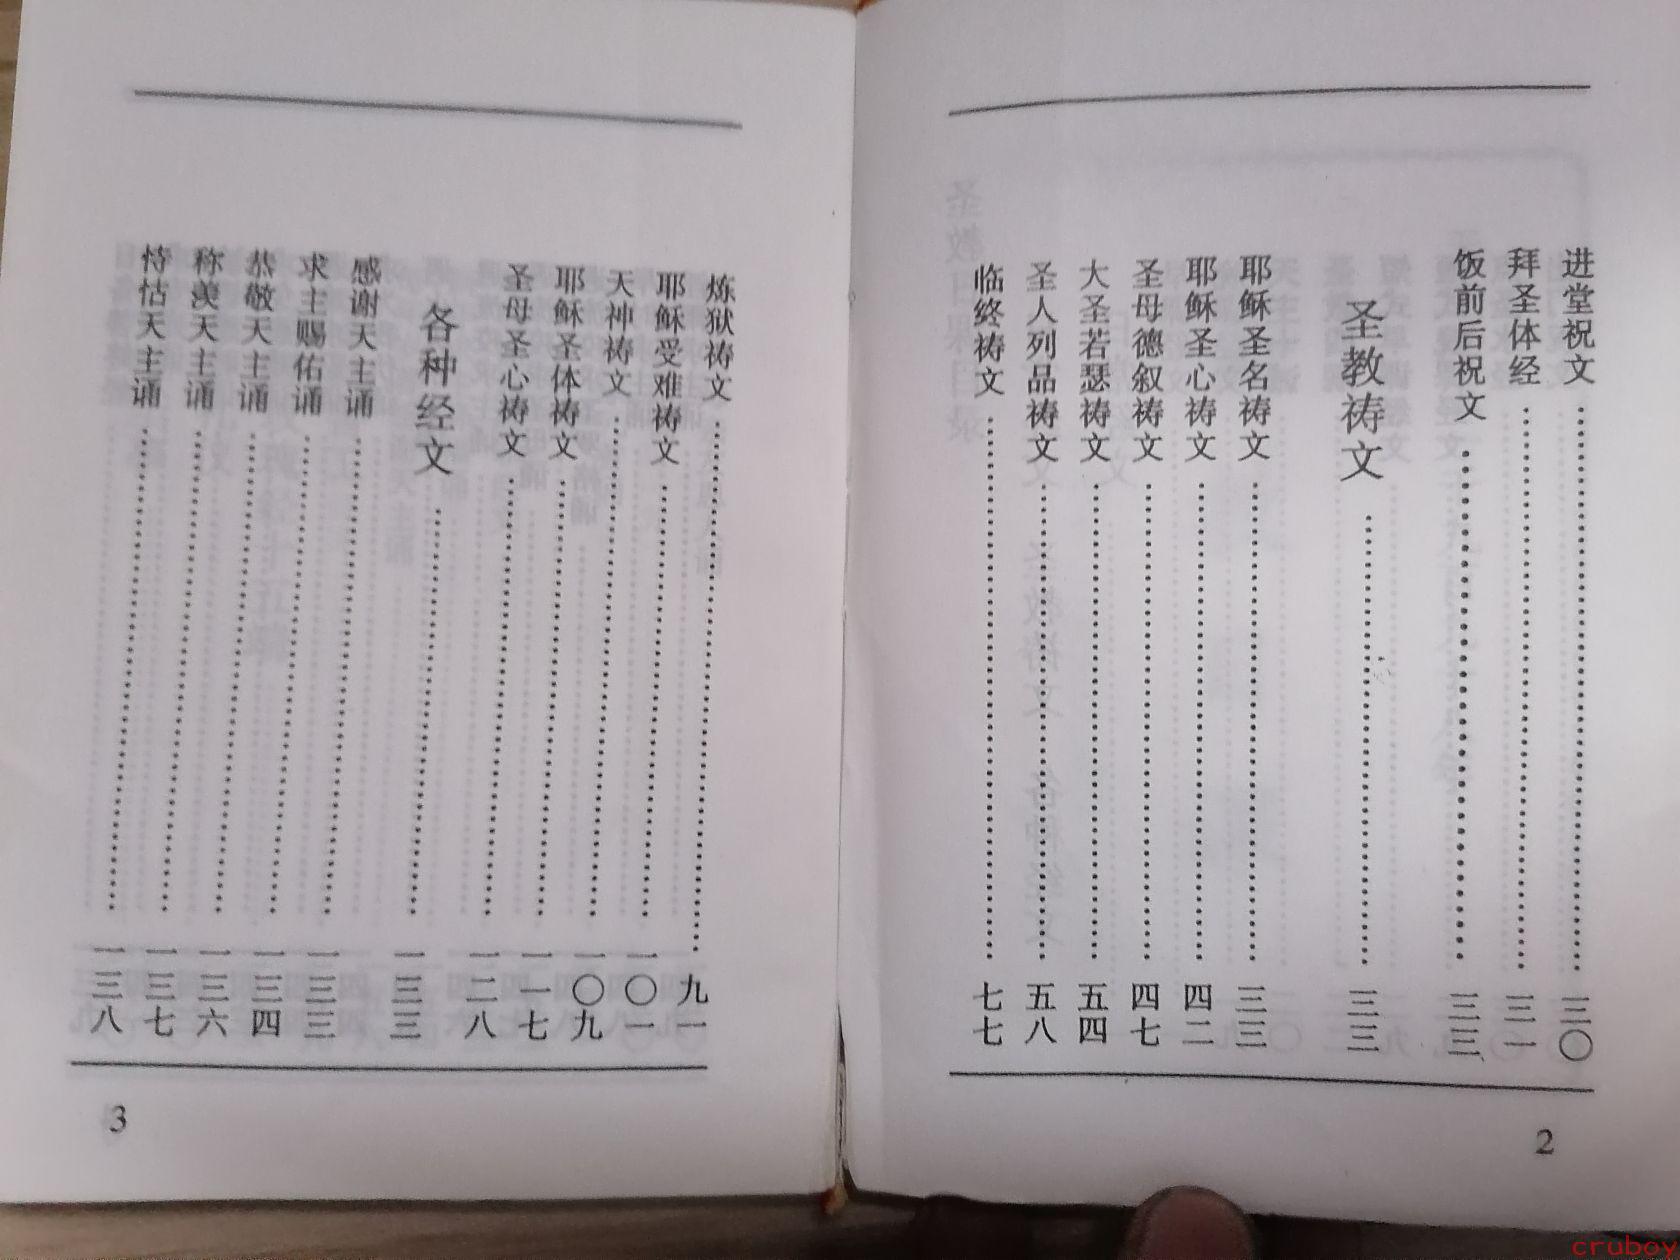 进堂祝文 三〇
拜圣体经 三一
饭前后祝文 三三
圣教祷文 三三
耶稣圣名祷文 三三
耶稣圣心祷文 四二
圣母德叙祷文 四七
大圣若瑟祷文 五四
圣人列品祷文 五八
临终祷文 七七
2
炼狱祷文 九一
耶稣受难祷文 一〇一
天神祷文 一〇九
耶稣圣体祷文 一一七
圣母圣心祷文 一二八
各种经文 一三三
感谢天主诵 一三三
求主赐佑诵 一三四
恭敬天主诵 一三六
称羡天主诵 一三七
恃怙天主诵 一三八
3
cruboy